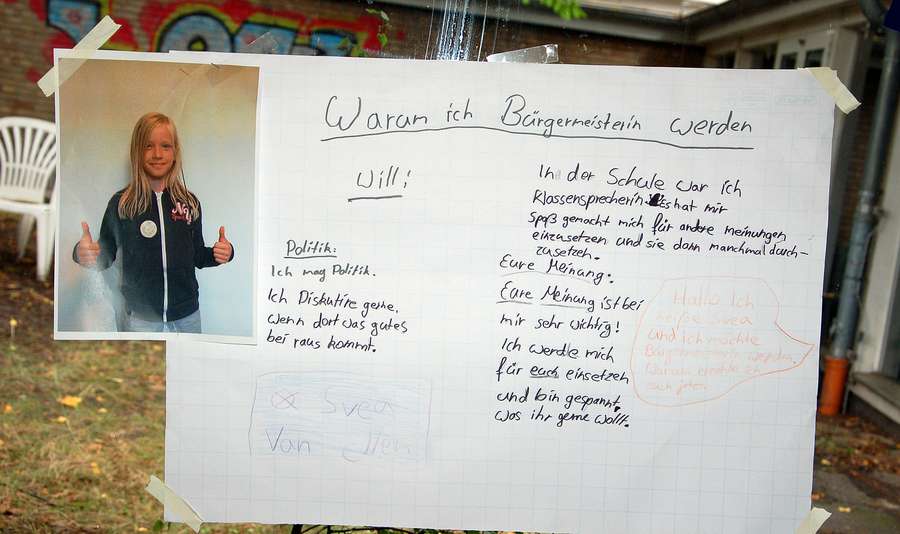 Warum ich Bürgermeisterin werden
will!
Politik:
Ich mag Politik.
Ich Diskutire gerne,
wenn dort was gutes
bei raus kommt.
Svea
Van
In der Schule war ich
Klassensprecherin. Es hat mir
Spaß gemacht mich für andere meinungen
einzusetzen und sie dann manchmal durch-
zusetzen.
Eure Meinung.
Eure Meinung ist bei
mir sehr wichtig!
Ich werde mich
für euch einsetzen
und bin gespannt,
was ihr gerne wollt.
Hallo Ich
heiße Svea
und ich möchte
Bürgermeisterin werden,
Warum erzähle ich
euch jetzt.
NY